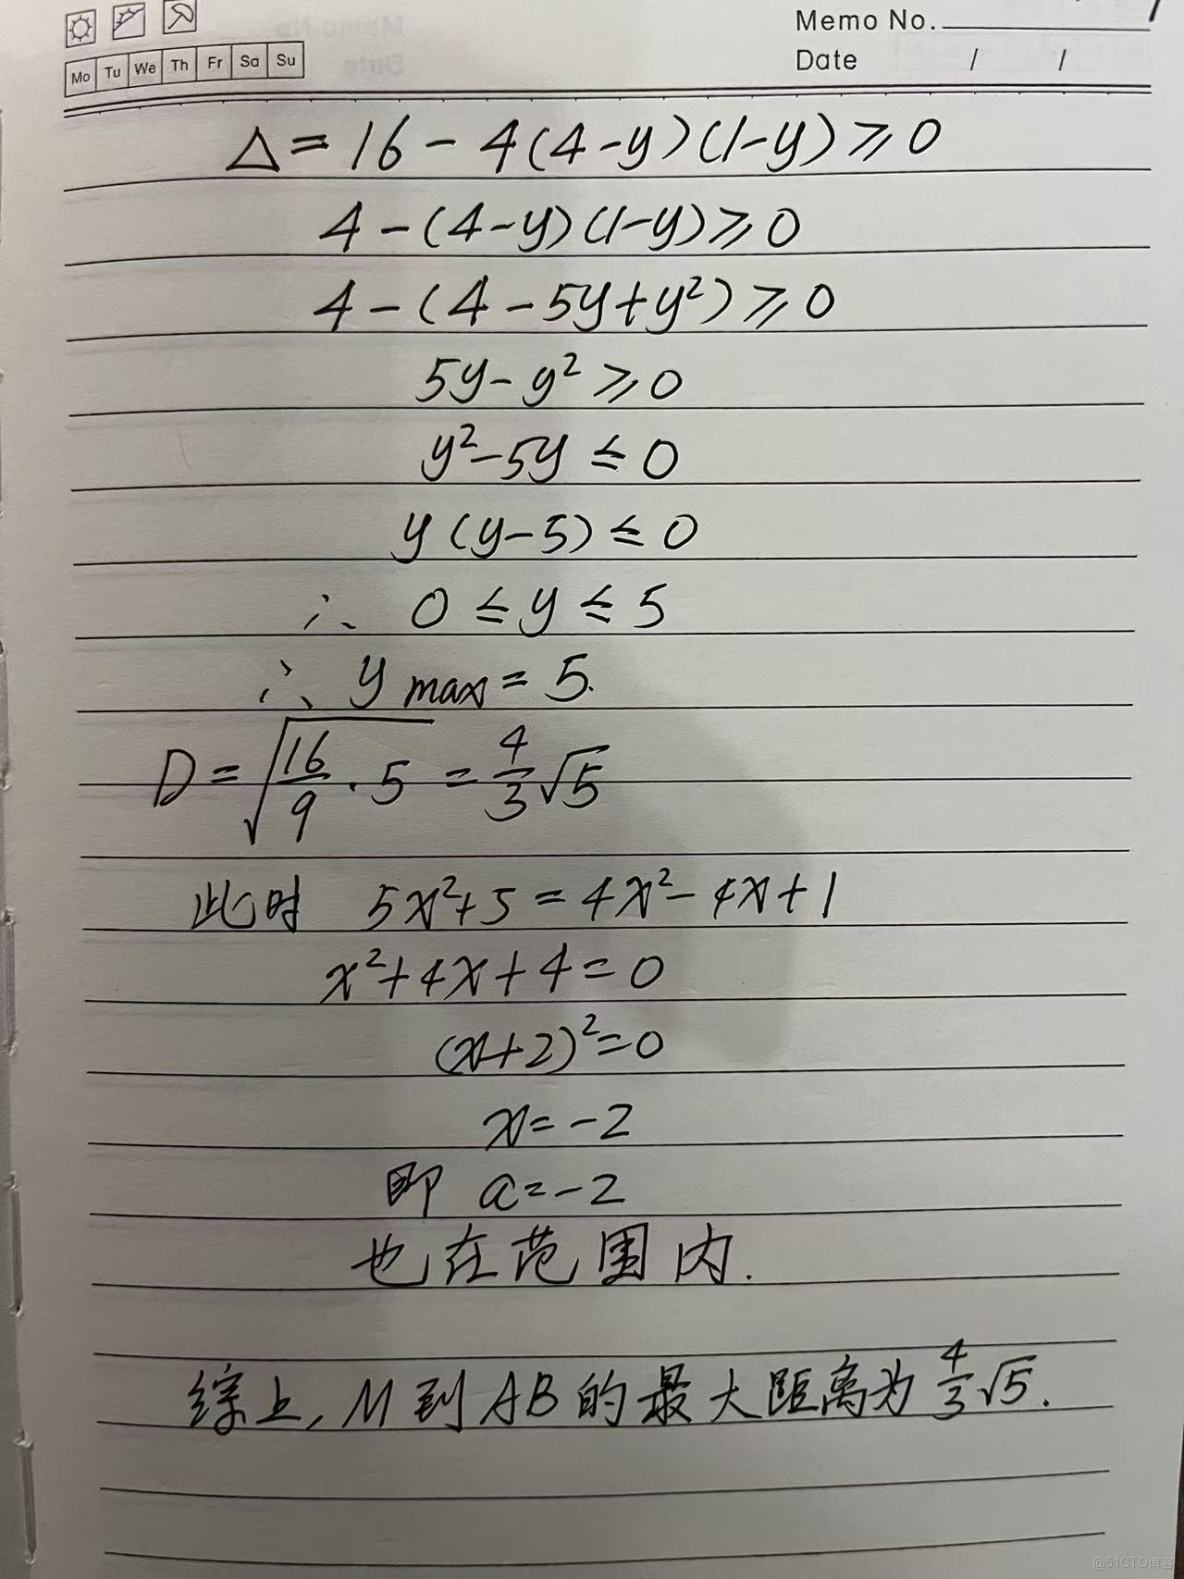 Memo No.
Mo Tu We Th Fr Sa Su
Date / /
△=16-4(4-y)(1-y)≥0
4-(4-y)(1-y)≥0
4-(4-5y+y²)≥0
5y-y²≥0
y²-5y≤0
y(y-5)≤0
∴ 0≤y≤5
∴ y max=5.
D=√(16/9·5)=4/3√5
此时 5x²+5=4x²-4x+1
x²+4x+4=0
(x+2)²=0
x=-2
即 a=-2
也在范围内.
综上,M到AB的最大距离为4/3√5.
@51CTO博客